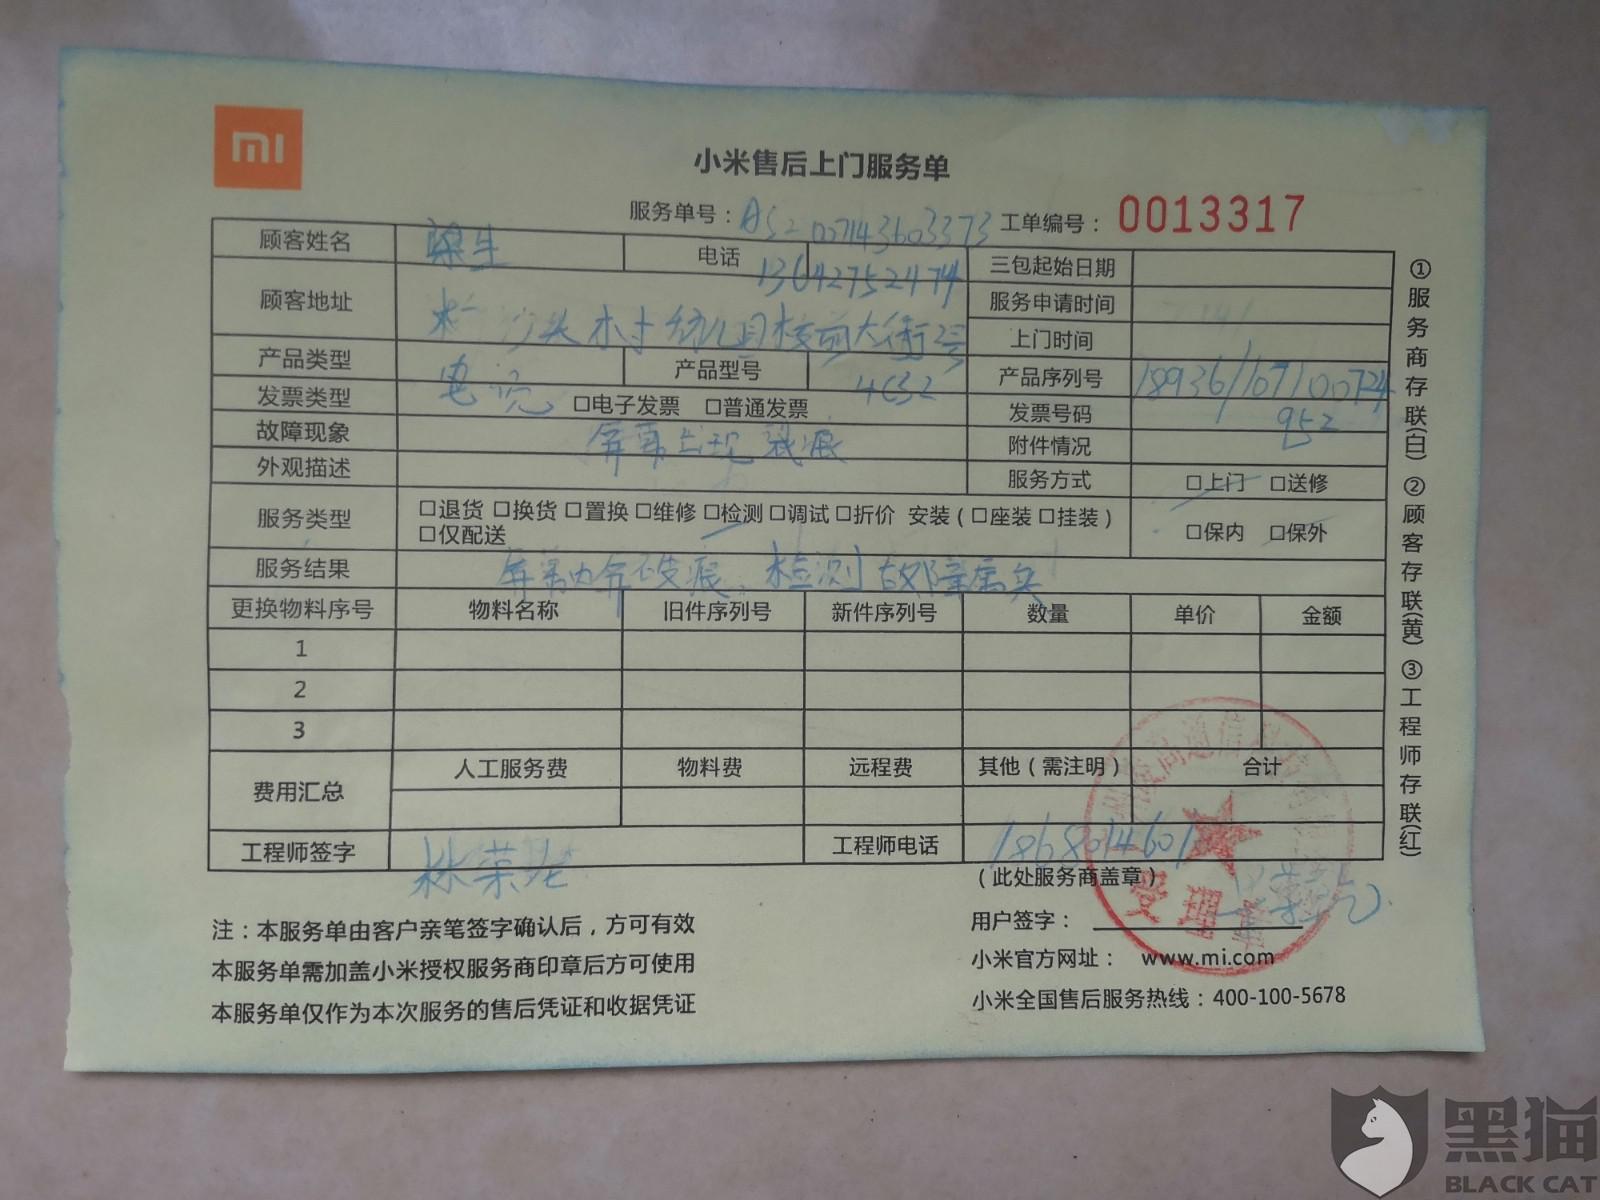 mi
小米售后上门服务单
服务单号： 工单编号： 0013317
顾客姓名 梁生 电话 13642752474 三包起始日期
顾客地址 沙头村幼儿园 大街2号 服务申请时间
上门时间
产品类型 电视 产品型号 4C32 产品序列号
发票类型 □电子发票 □普通发票 发票号码
故障现象 屏幕出现裂痕 附件情况
外观描述 服务方式 □上门 □送修
服务类型 □退货 □换货 □置换 □维修 □检测 □调试 □折价 安装（□座装 □挂装） □保内 □保外
□仅配送
服务结果 屏幕内屏破痕，检测故障属实
更换物料序号 物料名称 旧件序列号 新件序列号 数量 单价 金额
1
2
3
费用汇总 人工服务费 物料费 远程费 其他（需注明） 合计
工程师签字 林荣 工程师电话
（此处服务商盖章）
受理章
用户签字：
注：本服务单由客户亲笔签字确认后，方可有效
本服务单需加盖小米授权服务商印章后方可使用
本服务单仅作为本次服务的售后凭证和收据凭证
小米官方网址： www.mi.com
小米全国售后服务热线：400-100-5678
①服务商存联(白) ②顾客存联(黄) ③工程师存联(红)
黑猫
BLACK CAT